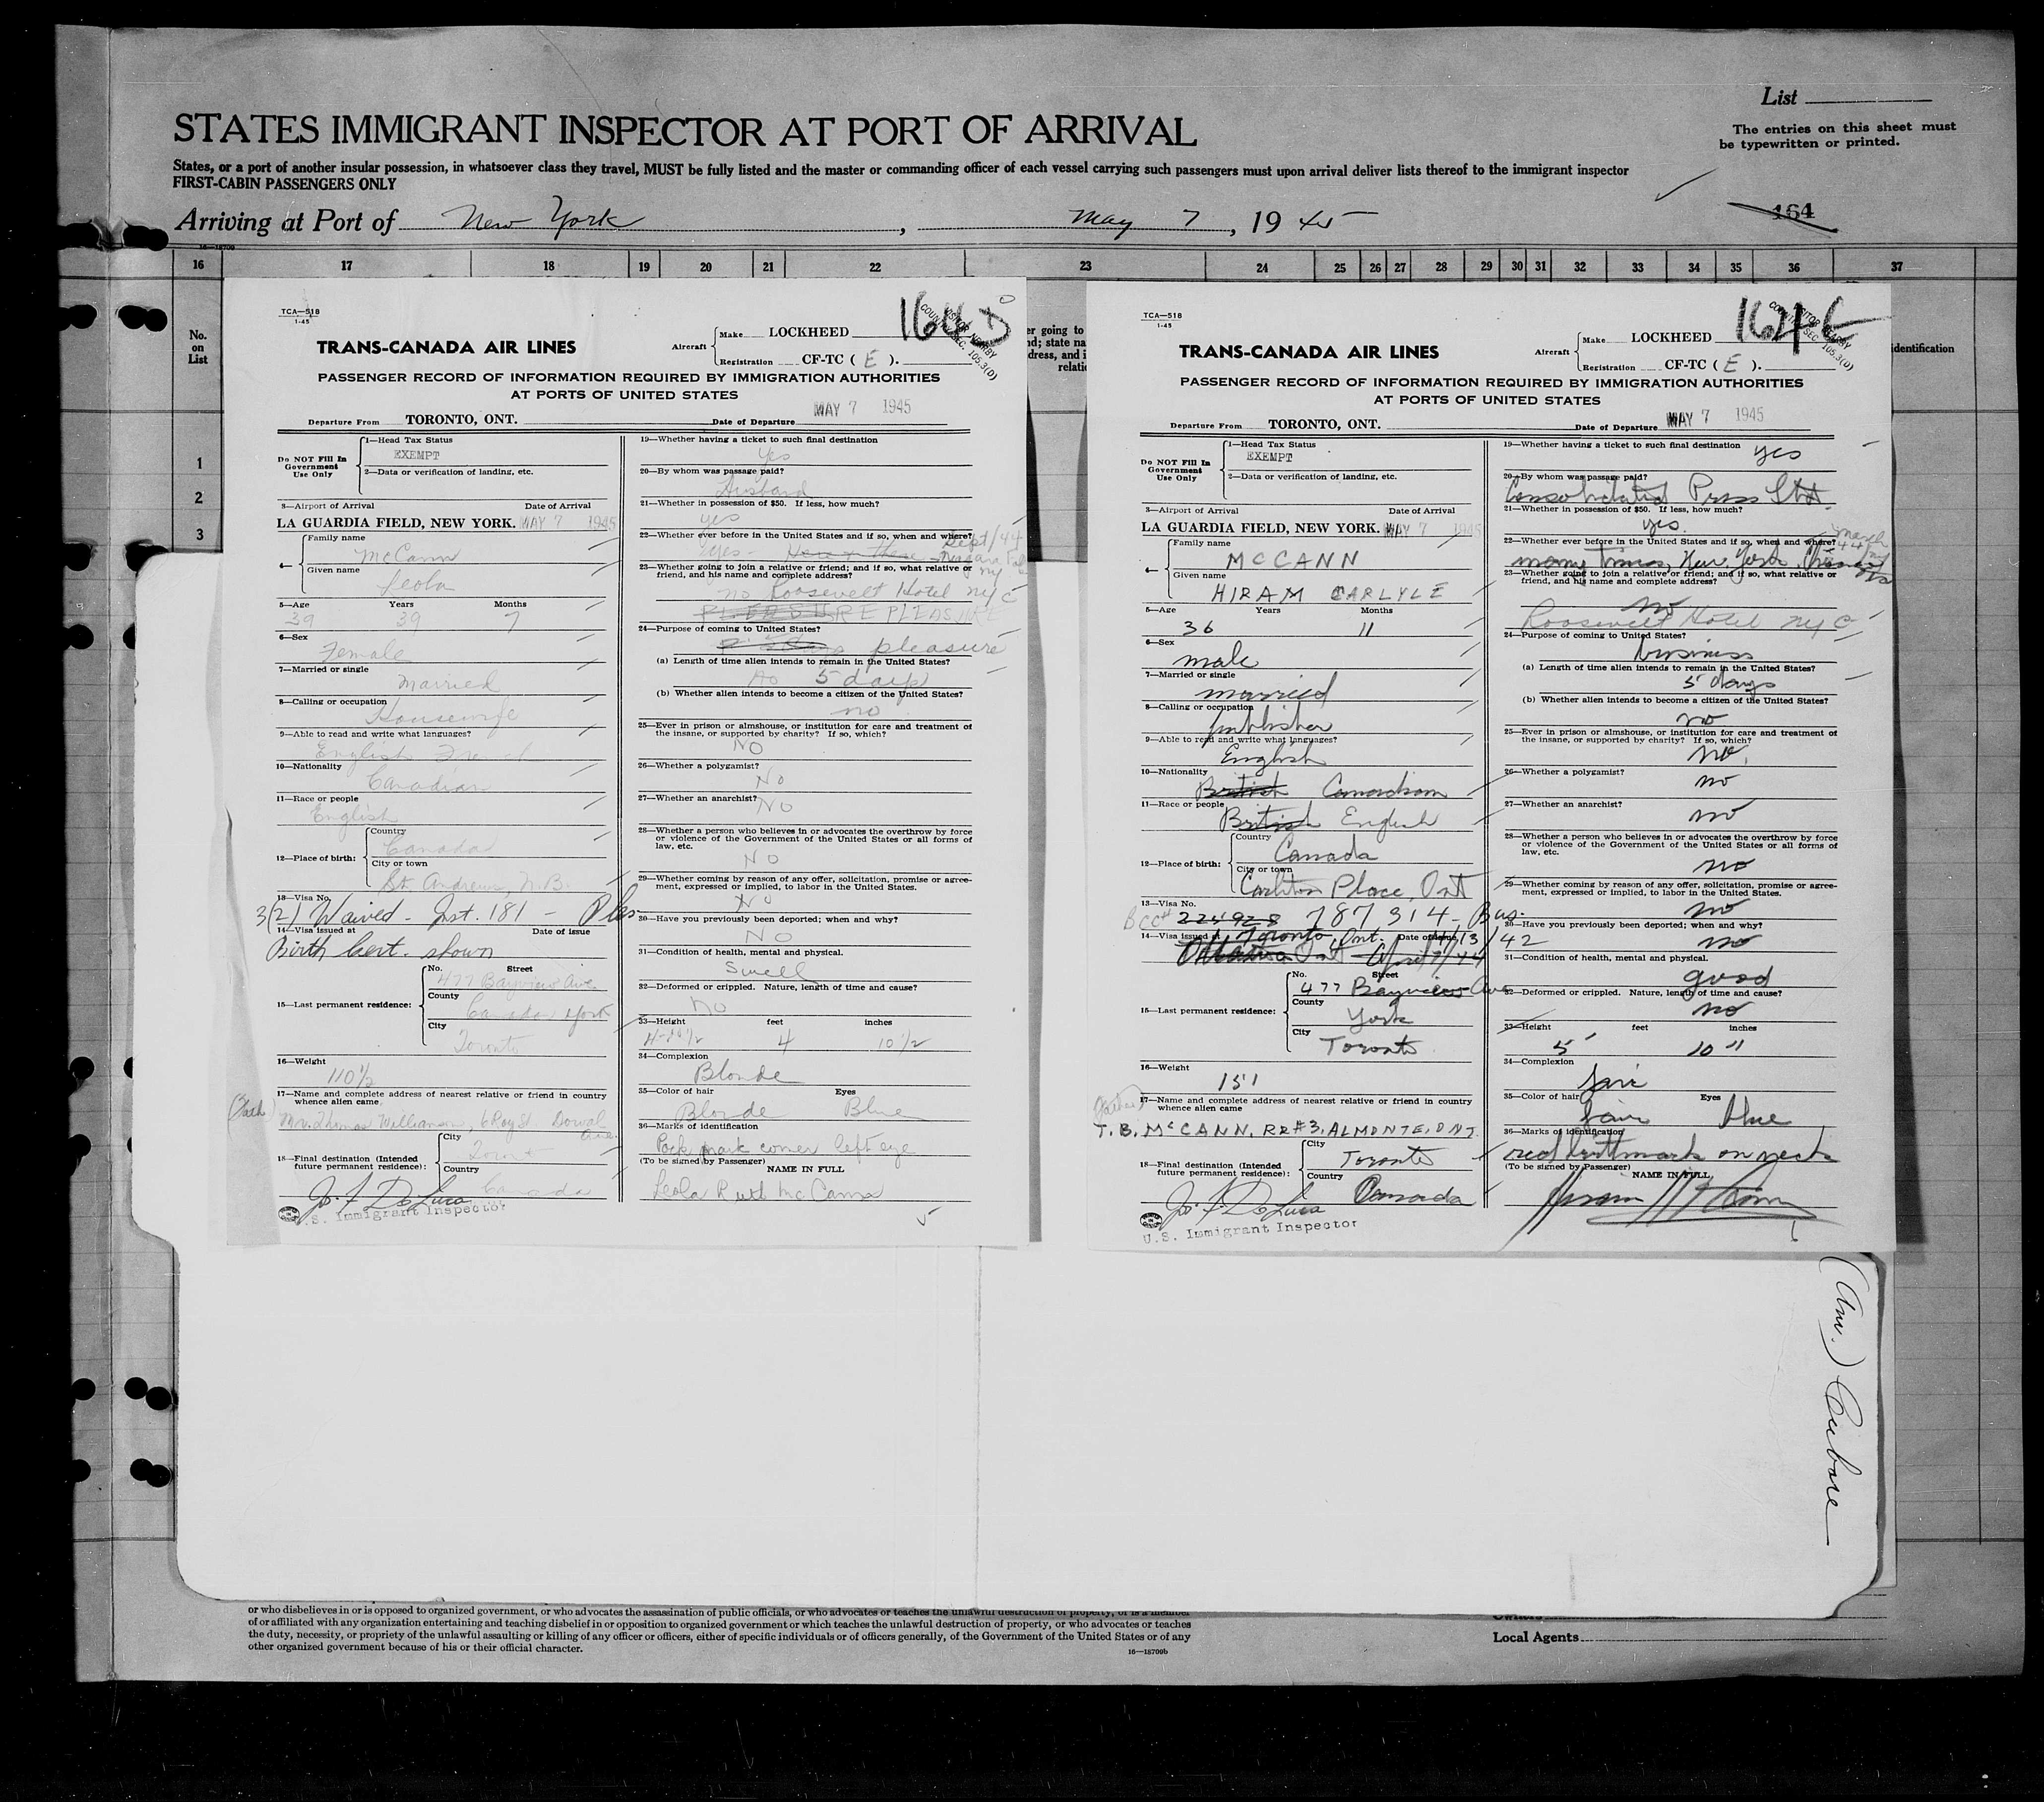 List
STATES IMMIGRANT INSPECTOR AT PORT OF ARRIVAL
The entries on this sheet must
be typewritten or printed.
States, or a port of another insular possession, in whatsoever class they travel, MUST be fully listed and the master or commanding officer of each vessel carrying such passengers must upon arrival deliver lists thereof to the immigrant inspector
FIRST-CABIN PASSENGERS ONLY
Arriving at Port of New York, May 7, 1945
164
16 17 18 19 20 21 22 23 24 25 26 27 28 29 30 31 32 33 34 35 36 37
No.
on
List
1
2
3
TCA—518
1-45
164 D
Aircraft Make LOCKHEED
Registration CF-TC ( E ).
TRANS-CANADA AIR LINES
PASSENGER RECORD OF INFORMATION REQUIRED BY IMMIGRATION AUTHORITIES
AT PORTS OF UNITED STATES
MAY 7 1945
Departure From TORONTO, ONT. Date of Departure
Do NOT Fill In
Government
Use Only
1—Head Tax Status
EXEMPT
2—Data or verification of landing, etc.
3—Airport of Arrival Date of Arrival
LA GUARDIA FIELD, NEW YORK. MAY 7 1945
4— Family name
McCann
Given name
Leola
5—Age Years Months
39 39 7
6—Sex
Female
7—Married or single
Married
8—Calling or occupation
Housewife
9—Able to read and write what languages?
English
10—Nationality
Canadian
11—Race or people
English
12—Place of birth: Country
Canada
City or town
St. Andrews, N.B.
13—Visa No.
3(2) Waived - Inst. 181 - Ples
14—Visa issued at Date of issue
Birth Cert. shown
15—Last permanent residence: No. Street
477 Bayview Ave
County
Canada York
City
Toronto
16—Weight
110 1/2
17—Name and complete address of nearest relative or friend in country
whence alien came
Mr. Thomas Williamson, 6 Roy St Dorval
Ave.
18—Final destination (Intended
future permanent residence): City
Toronto
Country
Canada
Jo. F. De Luca
U.S. Immigrant Inspector
19—Whether having a ticket to such final destination
Yes
20—By whom was passage paid?
Husband
21—Whether in possession of $50. If less, how much?
yes
22—Whether ever before in the United States and if so, when and where?
Yes - Sept/44
Niagara Falls
NY
23—Whether going to join a relative or friend; and if so, what relative or
friend, and his name and complete address?
no Roosevelt Hotel NYC
PLEASURE PLEASURE
24—Purpose of coming to United States?
pleasure
(a) Length of time alien intends to remain in the United States?
5 days
(b) Whether alien intends to become a citizen of the United States?
no
25—Ever in prison or almshouse, or institution for care and treatment of
the insane, or supported by charity? If so, which?
NO
26—Whether a polygamist?
No
27—Whether an anarchist?
NO
28—Whether a person who believes in or advocates the overthrow by force
or violence of the Government of the United States or all forms of
law, etc.
NO
29—Whether coming by reason of any offer, solicitation, promise or agree-
ment, expressed or implied, to labor in the United States.
No
30—Have you previously been deported; when and why?
NO
31—Condition of health, mental and physical.
Swell
32—Deformed or crippled. Nature, length of time and cause?
No
33—Height feet inches
4-10 1/2 4 10 1/2
34—Complexion
Blonde
35—Color of hair Eyes
Blonde Blue
36—Marks of identification
Pock mark corner left eye
(To be signed by Passenger)
NAME IN FULL
Leola Ruth McCann
TCA—518
1-45
164 E
Aircraft Make LOCKHEED
Registration CF-TC ( E ).
TRANS-CANADA AIR LINES
PASSENGER RECORD OF INFORMATION REQUIRED BY IMMIGRATION AUTHORITIES
AT PORTS OF UNITED STATES
MAY 7 1945
Departure From TORONTO, ONT. Date of Departure
Do NOT Fill In
Government
Use Only
1—Head Tax Status
EXEMPT
2—Data or verification of landing, etc.
3—Airport of Arrival Date of Arrival
LA GUARDIA FIELD, NEW YORK. MAY 7 1945
4— Family name
MCCANN
Given name
HIRAM CARLYLE
5—Age Years Months
36 11
6—Sex
male
7—Married or single
married
8—Calling or occupation
publisher
9—Able to read and write what languages?
English
10—Nationality
British Canadian
11—Race or people
British English
12—Place of birth: Country
Canada
City or town
Carleton Place, Ont
13—Visa No.
BCC# 224928 787314 - Bus.
14—Visa issued at Toronto, Ont. Date of issue 4/13/42
Ottawa Ont April 7/44
15—Last permanent residence: No. Street
477 Bayview Ave
County
York
City
Toronto
16—Weight
151
(father)
17—Name and complete address of nearest relative or friend in country
whence alien came
T. B. McCANN, RR#3, ALMONTE, ONT.
18—Final destination (Intended
future permanent residence): City
Toronto
Country
Canada
Jo. F. De Luca
U.S. Immigrant Inspector
19—Whether having a ticket to such final destination
yes
20—By whom was passage paid?
Consolidated Press Ltd.
21—Whether in possession of $50. If less, how much?
yes.
22—Whether ever before in the United States and if so, when and where?
March
44
many times, New York, Chicago
23—Whether going to join a relative or friend; and if so, what relative or
friend, and his name and complete address?
no
Roosevelt Hotel NYC
24—Purpose of coming to United States?
business
(a) Length of time alien intends to remain in the United States?
5 days
(b) Whether alien intends to become a citizen of the United States?
no
25—Ever in prison or almshouse, or institution for care and treatment of
the insane, or supported by charity? If so, which?
no.
26—Whether a polygamist?
no
27—Whether an anarchist?
no
28—Whether a person who believes in or advocates the overthrow by force
or violence of the Government of the United States or all forms of
law, etc.
no
29—Whether coming by reason of any offer, solicitation, promise or agree-
ment, expressed or implied, to labor in the United States.
no
30—Have you previously been deported; when and why?
no
31—Condition of health, mental and physical.
good
32—Deformed or crippled. Nature, length of time and cause?
no
33—Height feet inches
5' 10"
34—Complexion
fair
35—Color of hair Eyes
fair blue
36—Marks of identification
red birthmark on neck
(To be signed by Passenger)
NAME IN FULL
Hiram McCann
identification
(Am.) Cubare
or who disbelieves in or is opposed to organized government, or who advocates the assassination of public officials, or who advocates or teaches the unlawful destruction of property, or is a member
of or affiliated with any organization entertaining and teaching disbelief in or opposition to organized government or which teaches the unlawful destruction of property, or who advocates or teaches
the duty, necessity, or propriety of the unlawful assaulting or killing of any officer or officers, either of specific individuals or of officers generally, of the Government of the United States or of any
other organized government because of his or their official character.
16—18709b
Owners
Local Agents